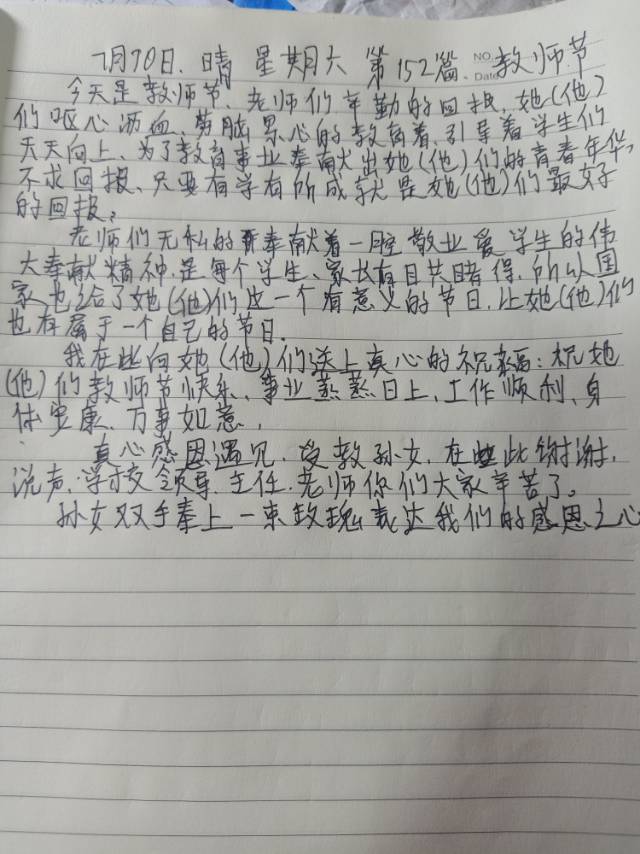 7月10日、晴 星期六 第152篇、教师节
NO.
Date
今天是教师节、老师们辛勤的回报、她(他)
们呕心沥血、劳脑累心的教育着、引导着学生们
天天向上、为了教育事业奉献出她(他)们的青春年华,
不求回报、只要有学有所成就是她(他)们最好
的回报。
老师们无私的奉献着一腔敬业爱学生的伟
大奉献精神、是每个学生、家长有目共睹得、所以国
家也给了她(他)们这一个有意义的节日、让她(他)们
也有属于一个自己的节日.
我在此向她(他)们送上真心的祝福:祝她
(他)们教师节快乐、事业蒸蒸日上、工作顺利、身
体安康、万事如意,
真心感恩遇见、教孙女、在此谢谢,
说声、学校领导、主任、老师你们大家辛苦了。
孙女双手奉上一束玫瑰表达我们的感恩之心